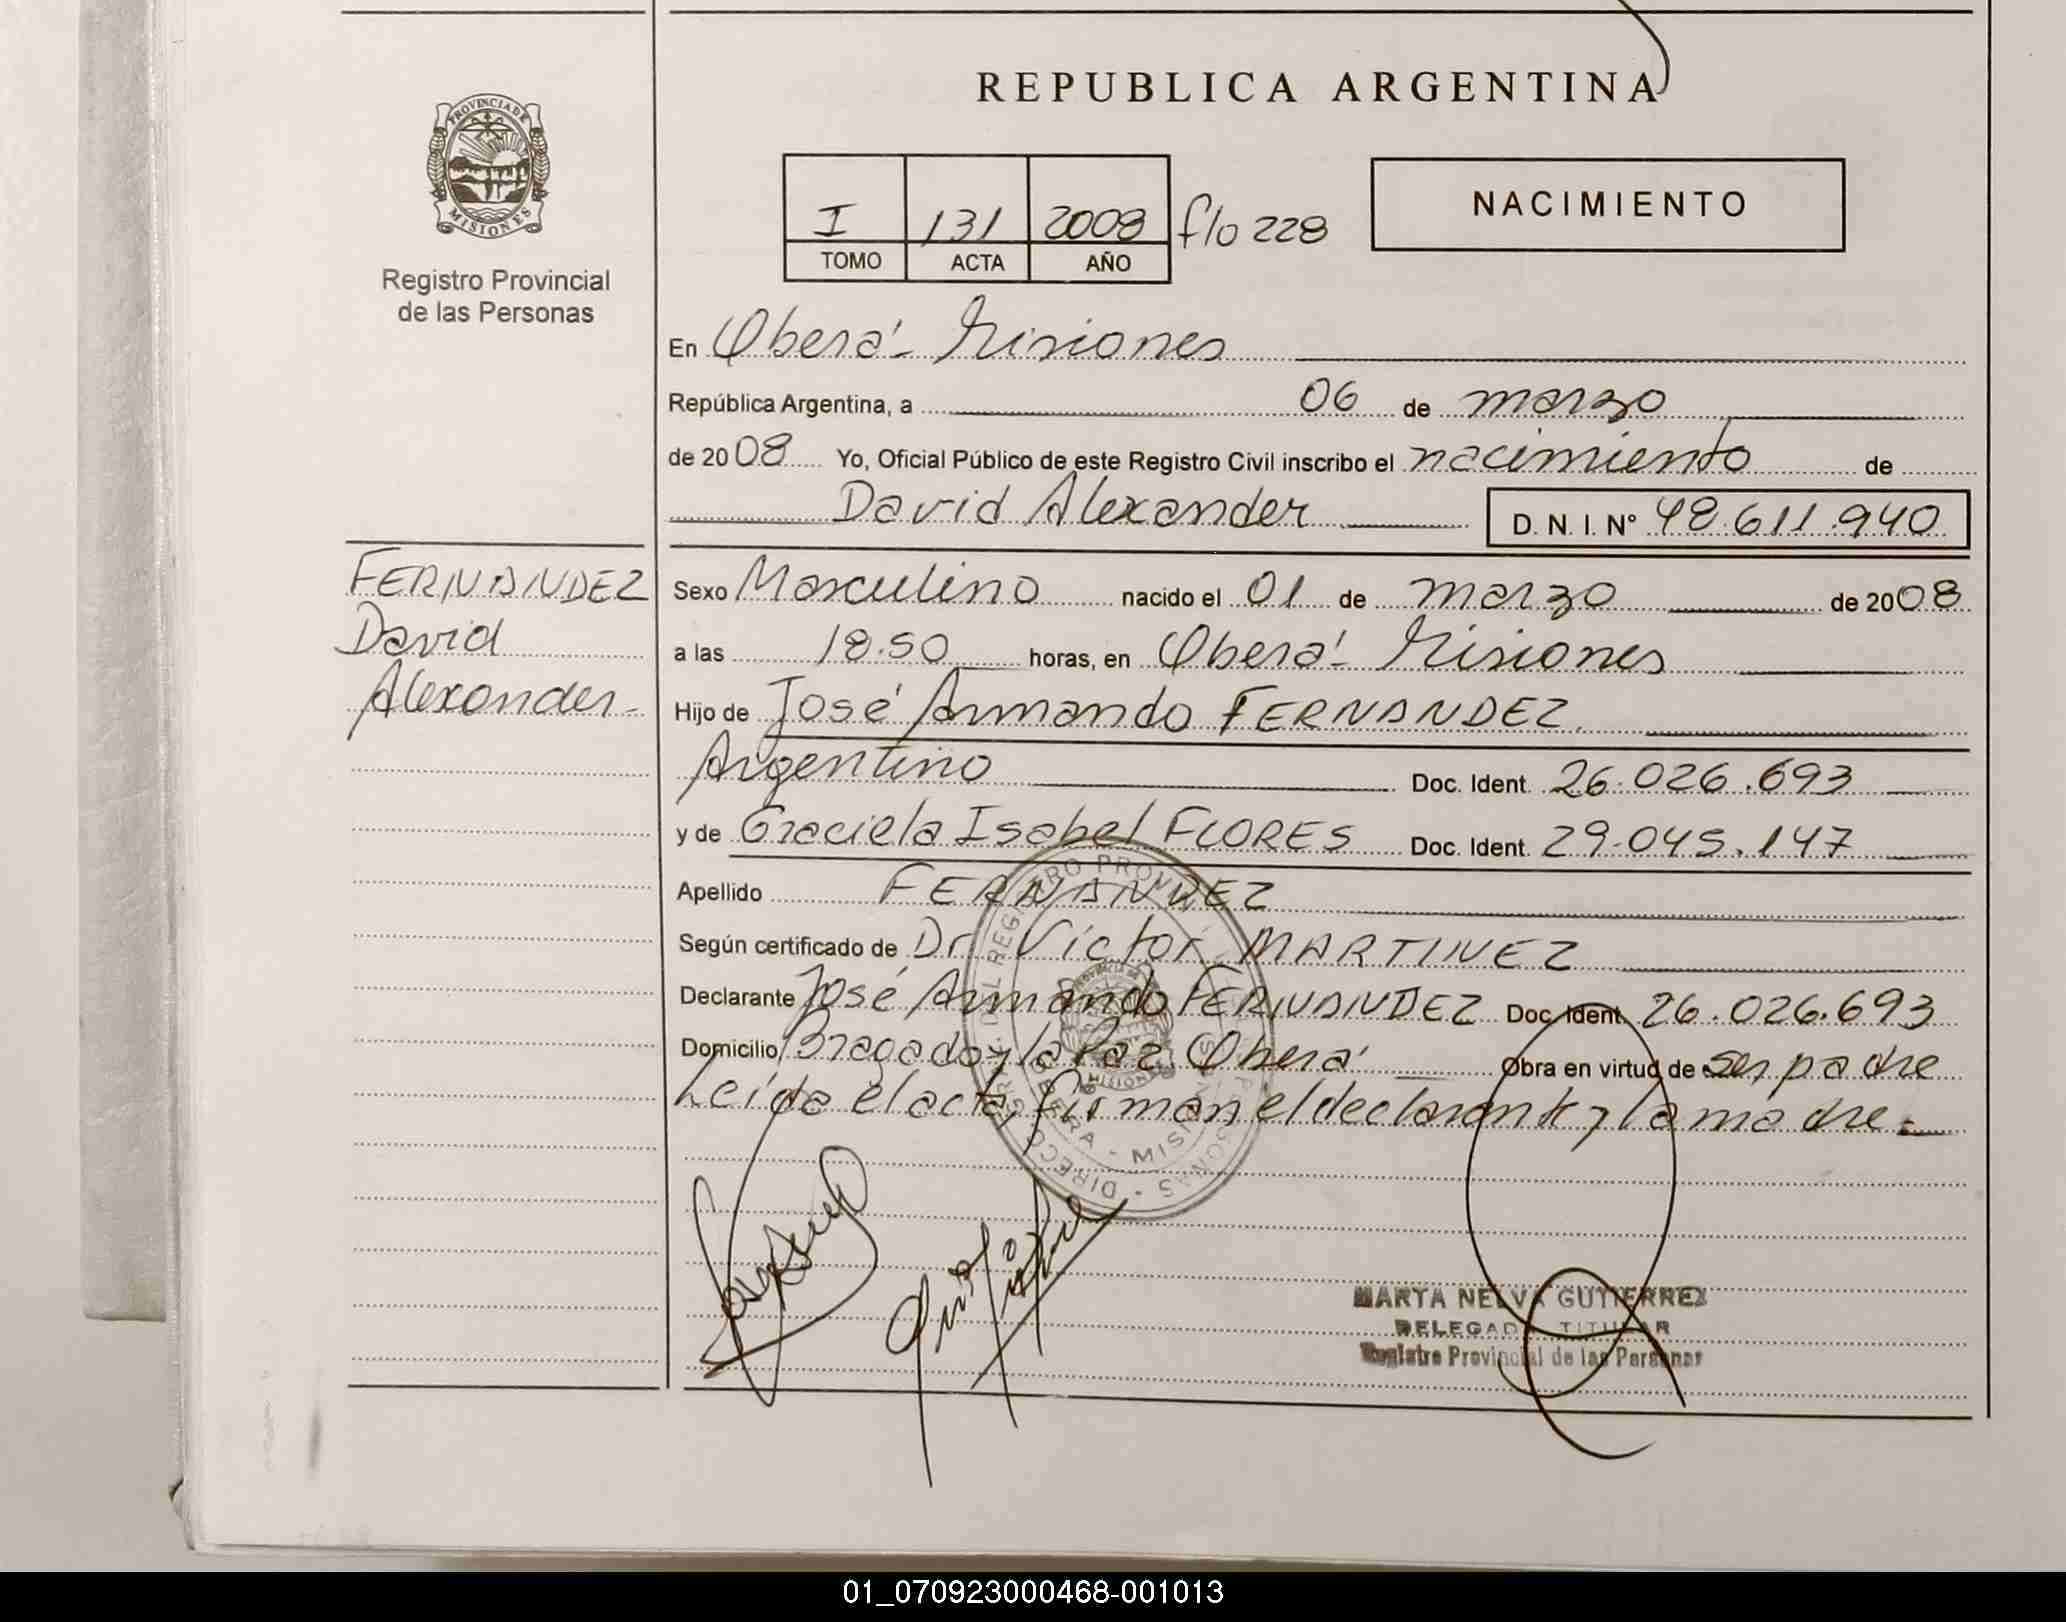 REPUBLICA ARGENTINA
PROVINCIA DE
MISIONES
Registro Provincial
de las Personas
I 131 2008 flo 228
TOMO ACTA AÑO
NACIMIENTO
En Oberá - Misiones
República Argentina, a 06 de marzo
de 2008 Yo, Oficial Público de este Registro Civil inscribo el nacimiento de
David Alexander D. N. I. N° 48.611.940
FERNANDEZ
David
Alexander.-
Sexo Masculino nacido el 01 de marzo de 2008
a las 18.50 horas, en Oberá - Misiones
Hijo de José Armando FERNANDEZ.
Argentino Doc. Ident. 26.026.693
y de Graciela Isabel FLORES Doc. Ident. 29.045.147
Apellido FERNANDEZ
Según certificado de Dr. Victor MARTINEZ
Declarante José Armando FERNANDEZ Doc. Ident. 26.026.693
Domicilio Bragado y la Paz. Oberá Obra en virtud de ser padre
Leída el acta, firman el declarante y la madre.-
MARTA NELVA GUTIERREZ
DELEGADA TITULAR
Registro Provincial de las Personas
01_070923000468-001013